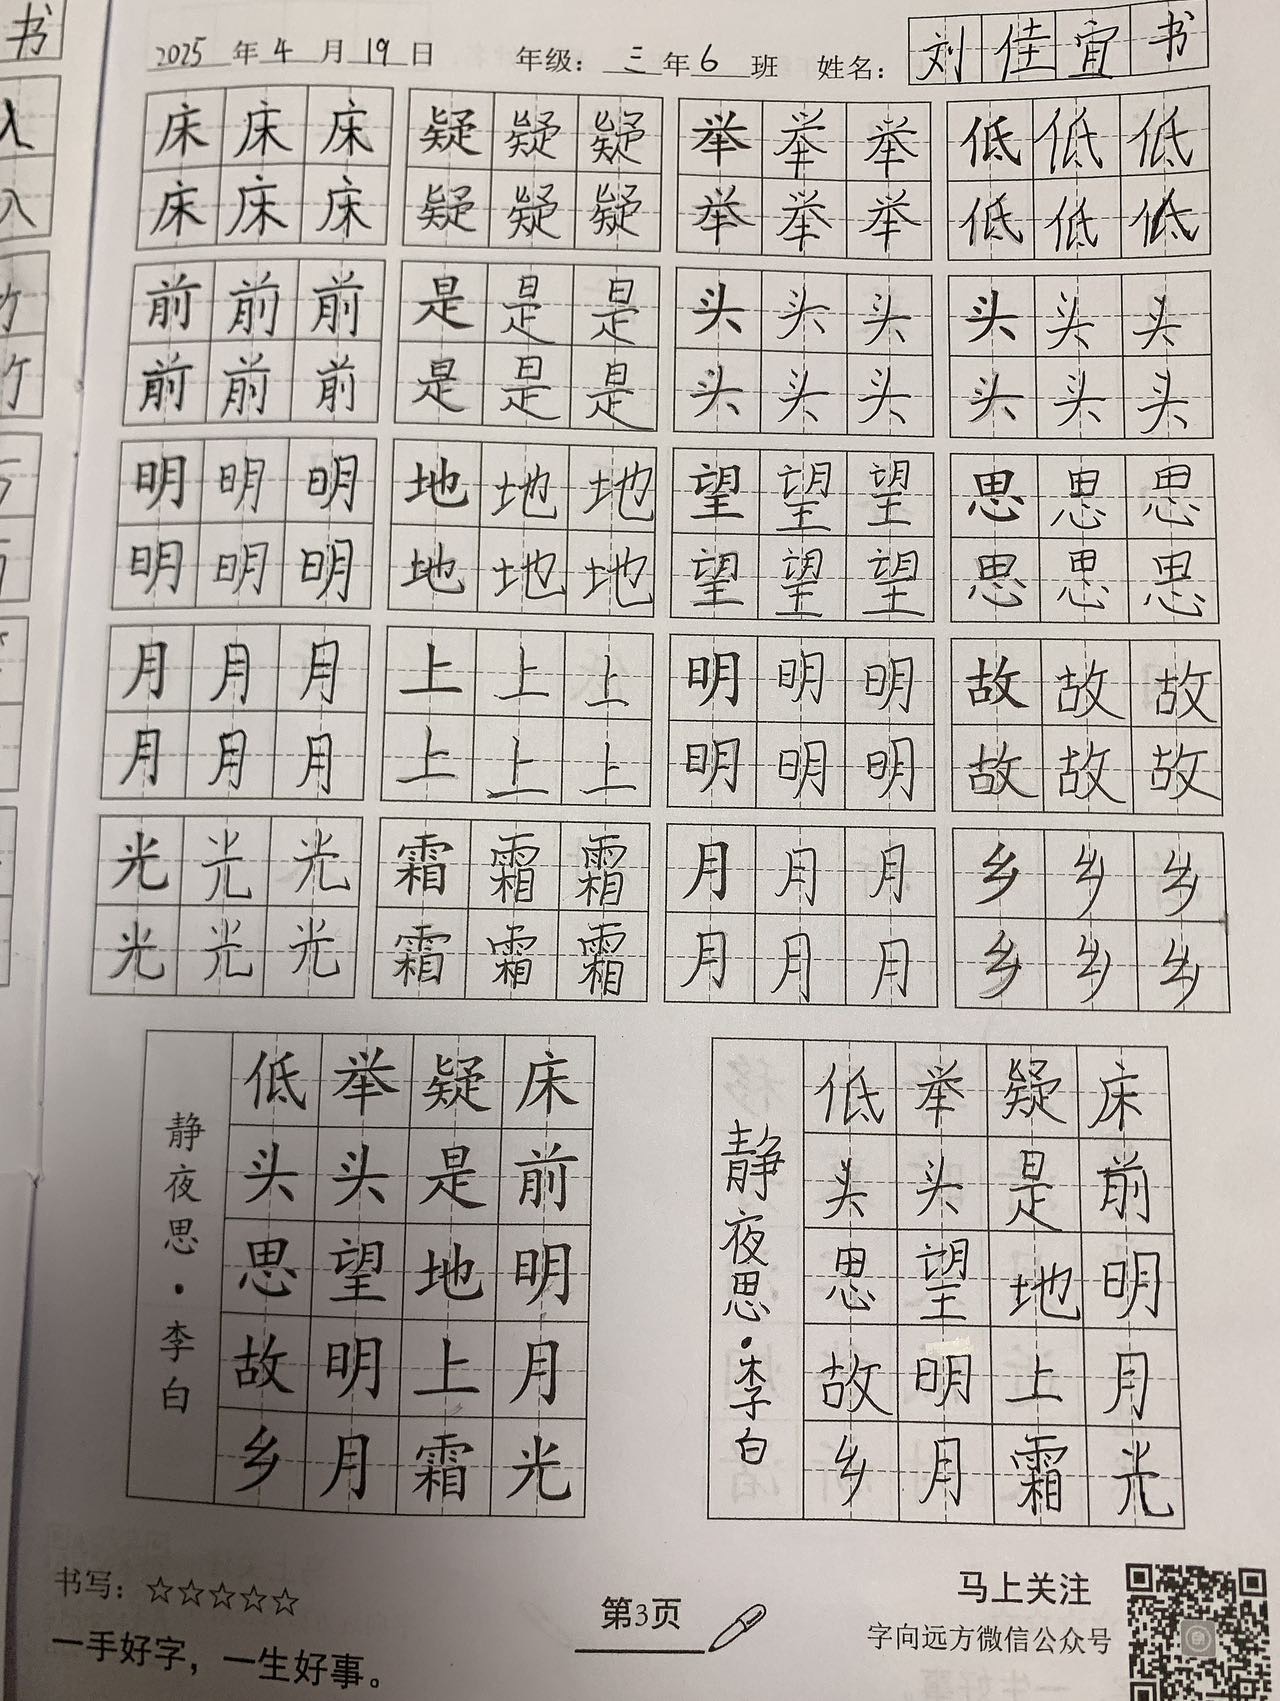 2025年4月19日 年级：三年6班 姓名：刘佳宜书
床床床 疑疑疑 举举举 低低低
床床床 疑疑疑 举举举 低低低
前前前 是是是 头头头 头头头
前前前 是是是 头头头 头头头
明明明 地地地 望望望 思思思
明明明 地地地 望望望 思思思
月月月 上上上 明明明 故故故
月月月 上上上 明明明 故故故
光光光 霜霜霜 月月月 乡乡乡
光光光 霜霜霜 月月月 乡乡乡
床前明月光
疑是地上霜
举头望明月
低头思故乡
静夜思·李白
床前明月光
疑是地上霜
举头望明月
低头思故乡
静夜思·李白
书写：☆☆☆☆☆
一手好字，一生好事。
第3页
马上关注
字向远方微信公众号